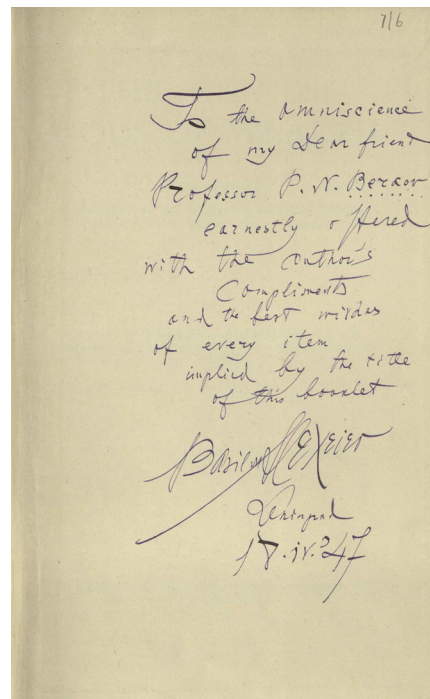 7/6
To the omniscience
of my dear friend
Professor P. N. Berkov
earnestly offered
with the author's
Compliments
and the best wishes
of every item
implied by the title
of this booklet
Basil
Leningrad
18.iv.47